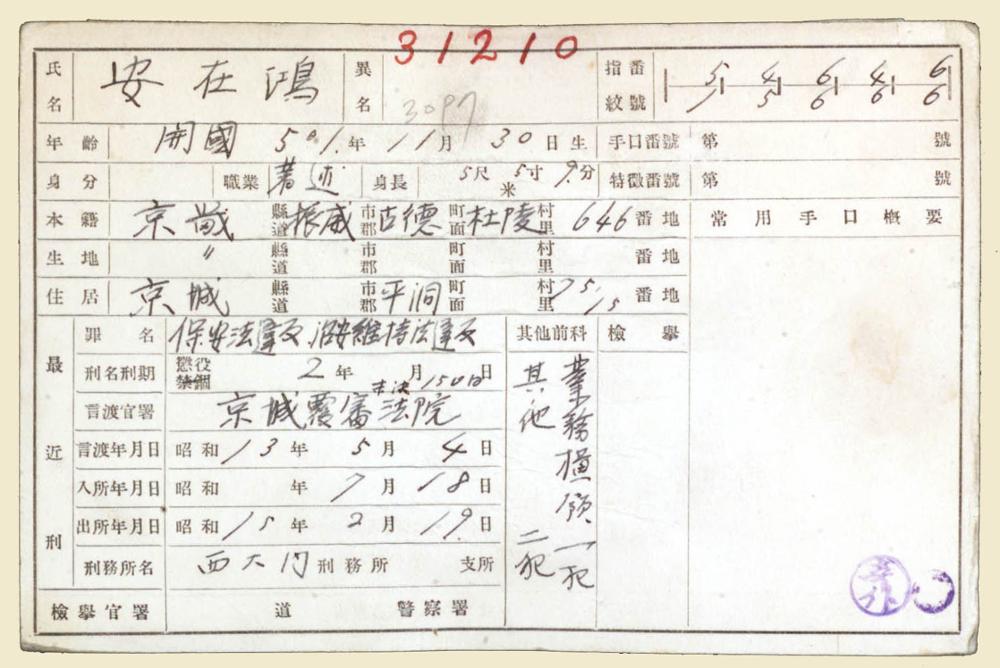 31210
氏名 安在鴻 異名 3097 指紋番號
年齡 開國 501年 11月 30日生 手口番號 第 號
身分 職業 著述 身長 5尺 5寸 9分 米 特徵番號 第 號
本籍 京畿 縣道 振威 市郡 古德 町面 杜陵 村里 646 番地 常用手口概要
生地 〃 縣道 市郡 町面 村里 番地
住居 京城 縣道 市郡 平洞 町面 村里 75, 15 番地
最近刑
罪名 保安法違反 治安維持法違反 其他前科 檢擧
刑名刑期 懲役 禁錮 2年 月 日 未決150日
言渡官署 京城覆審法院
言渡年月日 昭和13年 5月 4日
入所年月日 昭和 年 7月 18日
出所年月日 昭和15年 2月 19日
刑務所名 西大門 刑務所 支所
業務橫領 一犯
其他 二犯
檢擧官署 道 警察署